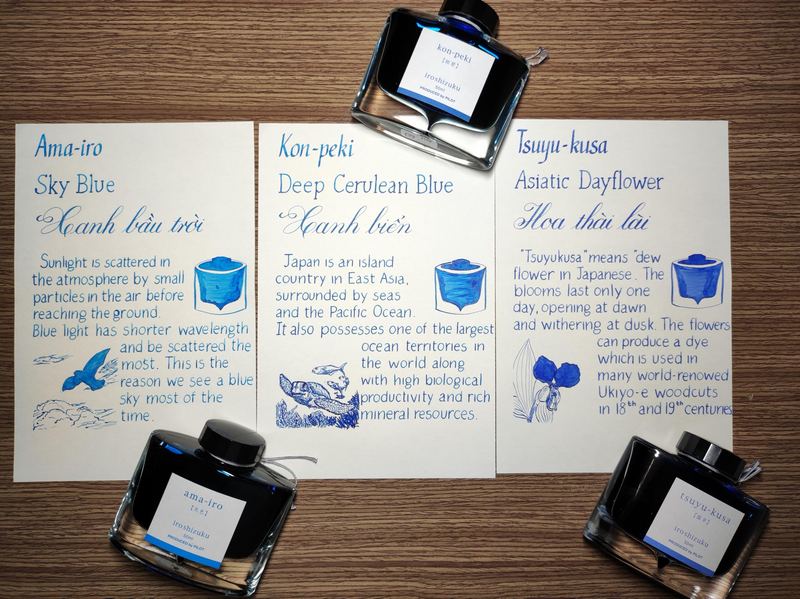 kon-peki
iroshizuku
50ml
PRODUCED by PILOT
Ama-iro
Sky Blue
Xanh bầu trời
Sunlight is scattered in
the atmosphere by small
particles in the air before
reaching the ground.
Blue light has shorter wavelength
and be scattered the
most. This is the
reason we see a blue
sky most of the
time.
Kon-peki
Deep Cerulean Blue
Xanh biển
Japan is an island
country in East Asia,
surrounded by seas
and the Pacific Ocean.
It also possesses one of the largest
ocean territories in
the world along
with high biological
productivity and rich
mineral resources.
Tsuyu-kusa
Asiatic Dayflower
Hoa thài lài
"Tsuyukusa" means "dew
flower in Japanese. The
blooms last only one
day, opening at dawn
and withering at dusk. The flowers
can produce a dye
which is used in
many world-renowed
Ukiyo-e woodcuts
in 18th and 19th centuries
ama-iro
iroshizuku
50ml
PRODUCED by PILOT
tsuyu-kusa
iroshizuku
50ml
PRODUCED by PILOT